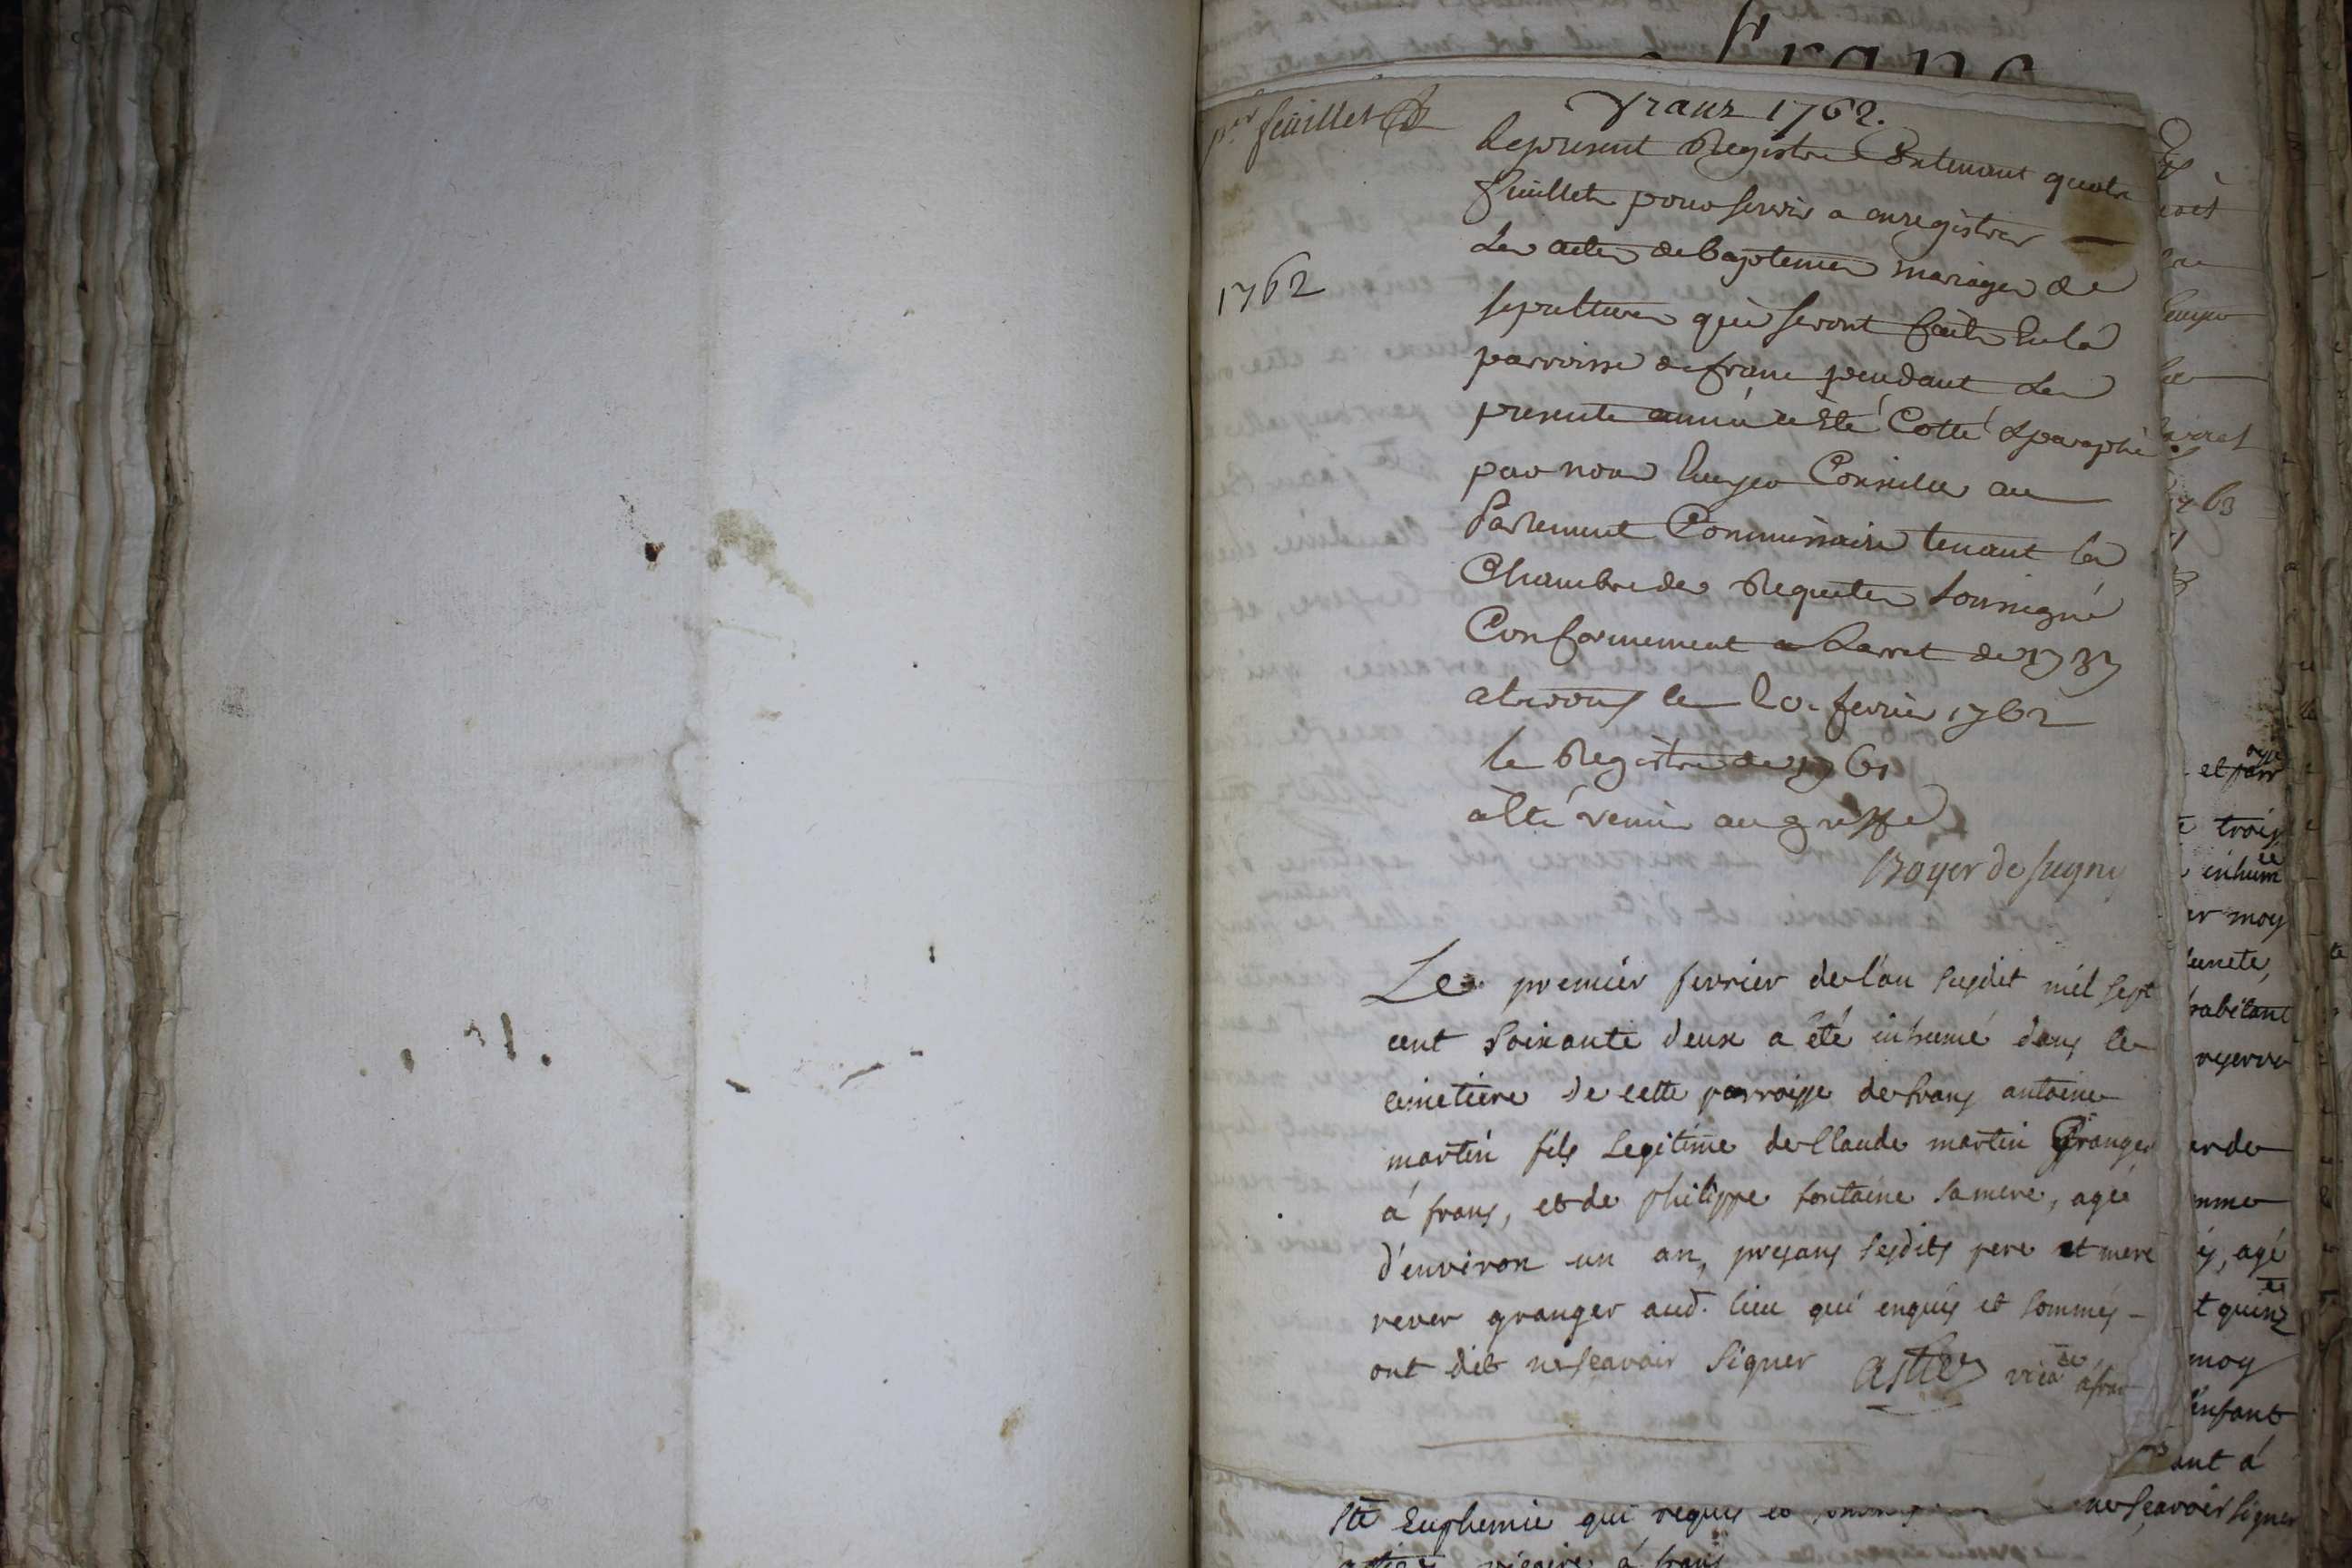 franc
p.er feuillet
frans 1762.
Le present Registre Contenant quatre
feuillets pour servir a enregistrer
Les actes de baptemes mariages de
sepultures qui seront faits en la
1762
parroisse de franc pendant La
presente année a Eté Cotté & paraphé
par nous Ecuyer Conseiller au
Parlement Commissaire tenant la
Chambre des Requetes soussigné
Conformement a Larret de 1737
a trevoux le 20. fevrier 1762
le Registre de 1761
a Eté remis au greffe
Boyer de Sugny
Le premier fevrier de l'an susdit mil sept
cent soixante deux a été inhumé dans le
cimetiere de cette parroisse de frans antoine
martin fils Legitime de Claude martin Granger
á frans, et de philippe fontaine sa mere, agé
d'environ un an, presans sesdits pere et mere
granger aud. lieu qui enquis et sommés
ont dit ne sçavoir signer astier vicre á frans
ste Euphemie qui requis et
ne sçavoir signer
vicaire á frans
1763
et parr
trois
inhumé
er moy
habitant
reserve
agé
t quinz
moy
enfant
ant á